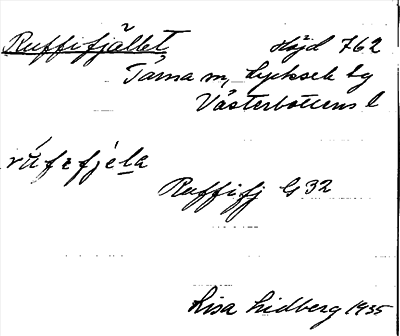 Ruffifjället Höjd 762
Tärna sn, Lycksele lg
Västerbottens l
rúfɛfjɛ́la
Ruffifj G 32
Lisa Lidberg 1935